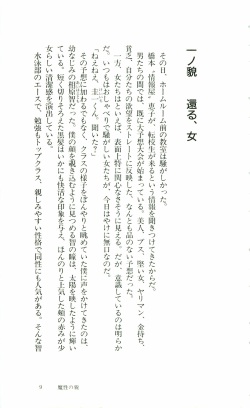 一ノ貌　還る、女
その日、ホームルーム前の教室は騒がしかった。
橋本〝情報屋〟恵子が、転校生が来るという情報を聞きつけてきたからだ。
男たちの間では、既に大予想大会が始まっている。美人、ブス、堅い女、ヤリマン、金持ち、
貧乏、自分たちの欲望をストレートに反映した、なんとも品のない予想だった。
一方、女たちはといえば、表面上特に関心なさそうに見える。だが、意識しているのは明らか
だ。いつもはおしゃべりで騒がしい女たちが、今日はやけに無口なのだ。
「ねえねえ、圭一くん。聞いた？」
その予想に加わるでもなく、クラスの様子をぼんやりと眺めていた僕に声をかけてきたのは、
幼なじみの相原智だった。僕の顔を覗き込むように見つめる智の瞳は、太陽を映したように輝い
ている。短く切りそろえた黒髪はいかにも快活な印象を与え、ほんのりと上気した頬の赤みが少
女らしい清潔感を演出している。
水泳部のエースで、勉強もトップクラス、親しみやすい性格で同性にも人気がある。そんな智
9　魔性の貌